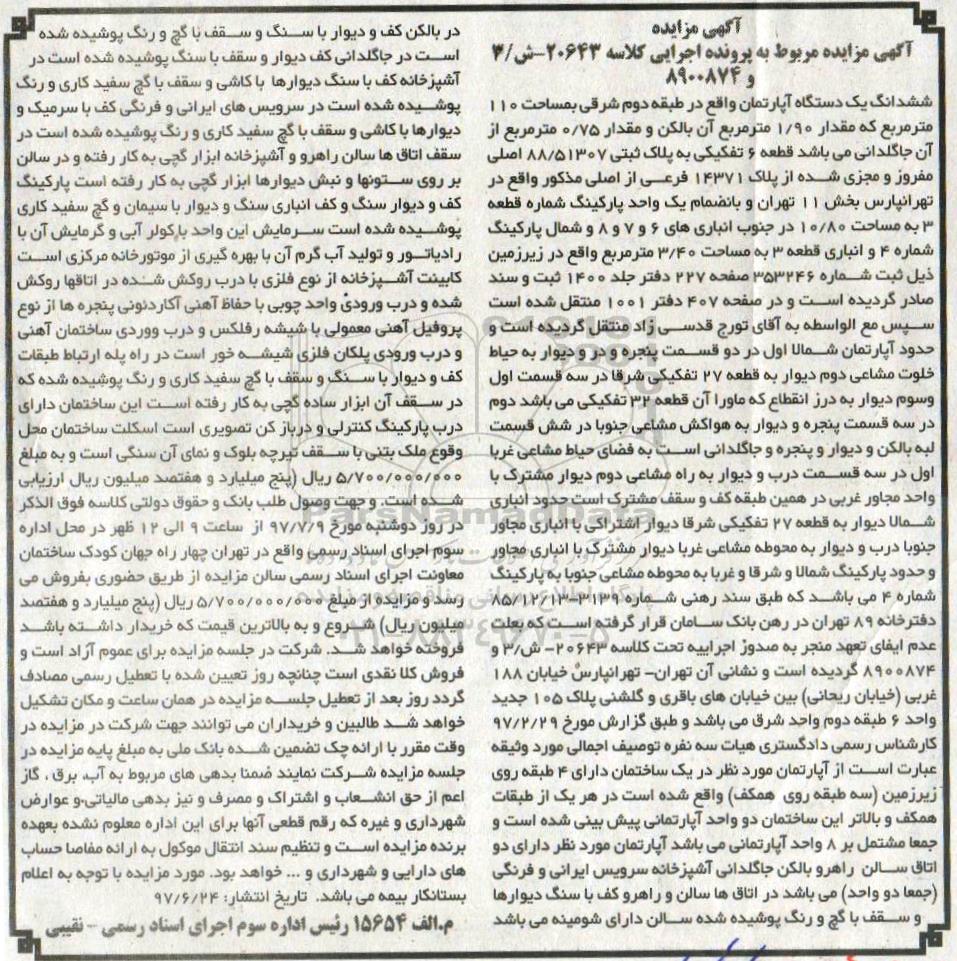 آگهی مزایده
آگهی مزایده مربوط به پرونده اجرایی کلاسه ۲۰۶۴۳-ش/۳
و ۸۹۰۰۸۷۴
ششدانگ یک دستگاه آپارتمان واقع در طبقه دوم شرقی بمساحت ۱۱۰
مترمربع که مقدار ۱/۹۰ مترمربع آن بالکن و مقدار ۰/۷۵ مترمربع از
آن جاگلدانی می باشد قطعه ۶ تفکیکی به پلاک ثبتی ۸۸/۵۱۳۰۷ اصلی
مفروز و مجزی شده از پلاک ۱۴۳۷۱ فرعی از اصلی مذکور واقع در
تهرانپارس بخش ۱۱ تهران و بانضمام یک واحد پارکینگ شماره قطعه
۳ به مساحت ۱۰/۸۰ در جنوب انباری های ۶ و ۷ و ۸ و شمال پارکینگ
شماره ۴ و انباری قطعه ۳ به مساحت ۳/۴۰ مترمربع واقع در زیرزمین
ذیل ثبت شماره ۳۵۳۲۴۶ صفحه ۲۲۷ دفتر جلد ۱۴۰۰ ثبت و سند
صادر گردیده است و در صفحه ۴۰۷ دفتر ۱۰۰۱ منتقل شده است
سپس مع الواسطه به آقای تورج قدسی زاد منتقل گردیده است و
حدود آپارتمان شمالا اول در دو قسمت پنجره و در و دیوار به حیاط
خلوت مشاعی دوم دیوار به قطعه ۲۷ تفکیکی شرقا در سه قسمت اول
وسوم دیوار به درز انقطاع که ماورا آن قطعه ۳۲ تفکیکی می باشد دوم
در سه قسمت پنجره و دیوار به هواکش مشاعی جنوبا در شش قسمت
لبه بالکن و دیوار و پنجره و جاگلدانی است به فضای حیاط مشاعی غربا
اول در سه قسمت درب و دیوار به راه مشاعی دوم دیوار مشترک با
واحد مجاور غربی در همین طبقه کف و سقف مشترک است حدود انباری
شمالا دیوار به قطعه ۲۷ تفکیکی شرقا دیوار اشتراکی با انباری مجاور
جنوبا درب و دیوار به محوطه مشاعی غربا دیوار مشترک با انباری مجاور
و حدود پارکینگ شمالا و شرقا و غربا به محوطه مشاعی جنوبا به پارکینگ
شماره ۴ می باشد که طبق سند رهنی شماره ۳۱۳۹-۸۵/۱۲/۱۳
دفترخانه ۸۹ تهران در رهن بانک سامان قرار گرفته است که بعلت
عدم ایفای تعهد منجر به صدور اجراییه تحت کلاسه ۲۰۶۴۳- ش/۳ و
۸۹۰۰۸۷۴ گردیده است و نشانی آن تهران- تهرانپارس خیابان ۱۸۸
غربی (خیابان ریحانی) بین خیابان های باقری و گلشنی پلاک ۱۰۵ جدید
واحد ۶ طبقه دوم واحد شرق می باشد و طبق گزارش مورخ ۹۷/۲/۲۹
کارشناس رسمی دادگستری هیات سه نفره توصیف اجمالی مورد وثیقه
عبارت است از آپارتمان مورد نظر در یک ساختمان دارای ۴ طبقه روی
زیرزمین (سه طبقه روی همکف) واقع شده است در هر یک از طبقات
همکف و بالاتر این ساختمان دو واحد آپارتمانی پیش بینی شده است و
جمعا مشتمل بر ۸ واحد آپارتمانی می باشد آپارتمان مورد نظر دارای دو
اتاق سالن راهرو بالکن جاگلدانی آشپزخانه سرویس ایرانی و فرنگی
(جمعا دو واحد) می باشد در اتاق ها سالن و راهرو کف با سنگ دیوارها
و سقف با گچ و رنگ پوشیده شده سالن دارای شومینه می باشد
در بالکن کف و دیوار با سنگ و سقف با گچ و رنگ پوشیده شده
است در جاگلدانی کف دیوار و سقف با سنگ پوشیده شده است در
آشپزخانه کف با سنگ دیوارها با کاشی و سقف با گچ سفید کاری و رنگ
پوشیده شده است در سرویس های ایرانی و فرنگی کف با سرمیک و
دیوارها با کاشی و سقف با گچ سفید کاری و رنگ پوشیده شده است در
سقف اتاق ها سالن راهرو و آشپزخانه ابزار گچی به کار رفته و در سالن
بر روی ستونها و نبش دیوارها ابزار گچی به کار رفته است پارکینگ
کف و دیوار سنگ و کف انباری سنگ و دیوار با سیمان و گچ سفید کاری
پوشیده شده است سرمایش این واحد با کولر آبی و گرمایش آن با
رادیاتور و تولید آب گرم آن با بهره گیری از موتورخانه مرکزی است
کابینت آشپزخانه از نوع فلزی با درب روکش شده در اتاقها روکش
شده و درب ورودی واحد چوبی با حفاظ آهنی آکاردئونی پنجره ها از نوع
پروفیل آهنی معمولی با شیشه رفلکس و درب ووردی ساختمان آهنی
و درب ورودی پلکان فلزی شیشه خور است در راه پله ارتباط طبقات
کف و دیوار با سنگ و سقف با گچ سفید کاری و رنگ پوشیده شده که
در سقف آن ابزار ساده گچی به کار رفته است این ساختمان دارای
درب پارکینگ کنترلی و درباز کن تصویری است اسکلت ساختمان محل
وقوع ملک بتنی با سقف تیرچه بلوک و نمای آن سنگی است و به مبلغ
۵/۷۰۰/۰۰۰/۰۰۰ ریال (پنج میلیارد و هفتصد میلیون ریال ارزیابی
شده است. و جهت وصول طلب بانک و حقوق دولتی کلاسه فوق الذکر
در روز دوشنبه مورخ ۹۷/۷/۹ از ساعت ۹ الی ۱۲ ظهر در محل اداره
سوم اجرای اسناد رسمی واقع در تهران چهار راه جهان کودک ساختمان
معاونت اجرای اسناد رسمی سالن مزایده از طریق حضوری بفروش می
رسد و مزایده از مبلغ ۵/۷۰۰/۰۰۰/۰۰۰ ریال (پنج میلیارد و هفتصد
میلیون ریال) شروع و به بالاترین قیمت که خریدار داشته باشد
فروخته خواهد شد. شرکت در جلسه مزایده برای عموم آزاد است و
فروش کلا نقدی است چنانچه روز تعیین شده با تعطیل رسمی مصادف
گردد روز بعد از تعطیل جلسه مزایده در همان ساعت و مکان تشکیل
خواهد شد طالبین و خریداران می توانند جهت شرکت در مزایده در
وقت مقرر با ارائه چک تضمین شده بانک ملی به مبلغ پایه مزایده در
جلسه مزایده شرکت نمایند ضمنا بدهی های مربوط به آب، برق ، گاز
اعم از حق انشعاب و اشتراک و مصرف و نیز بدهی مالیاتی،و عوارض
شهرداری و غیره که رقم قطعی آنها برای این اداره معلوم نشده بعهده
برنده مزایده است و تنظیم سند انتقال موکول به ارائه مفاصا حساب
های دارایی و شهرداری و ... خواهد بود. مورد مزایده با توجه به اعلام
بستانکار بیمه می باشد. تاریخ انتشار: ۹۷/۶/۲۴
م.الف ۱۵۶۵۴ رئیس اداره سوم اجرای اسناد رسمی - نقیبی
ParsNamadData
۰۲۱-۸۸۳۴۹۶۷۰-۵